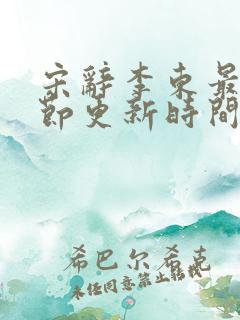 宋辭李東最
節更新時間
希巴尔希克
未任同意禁止転載